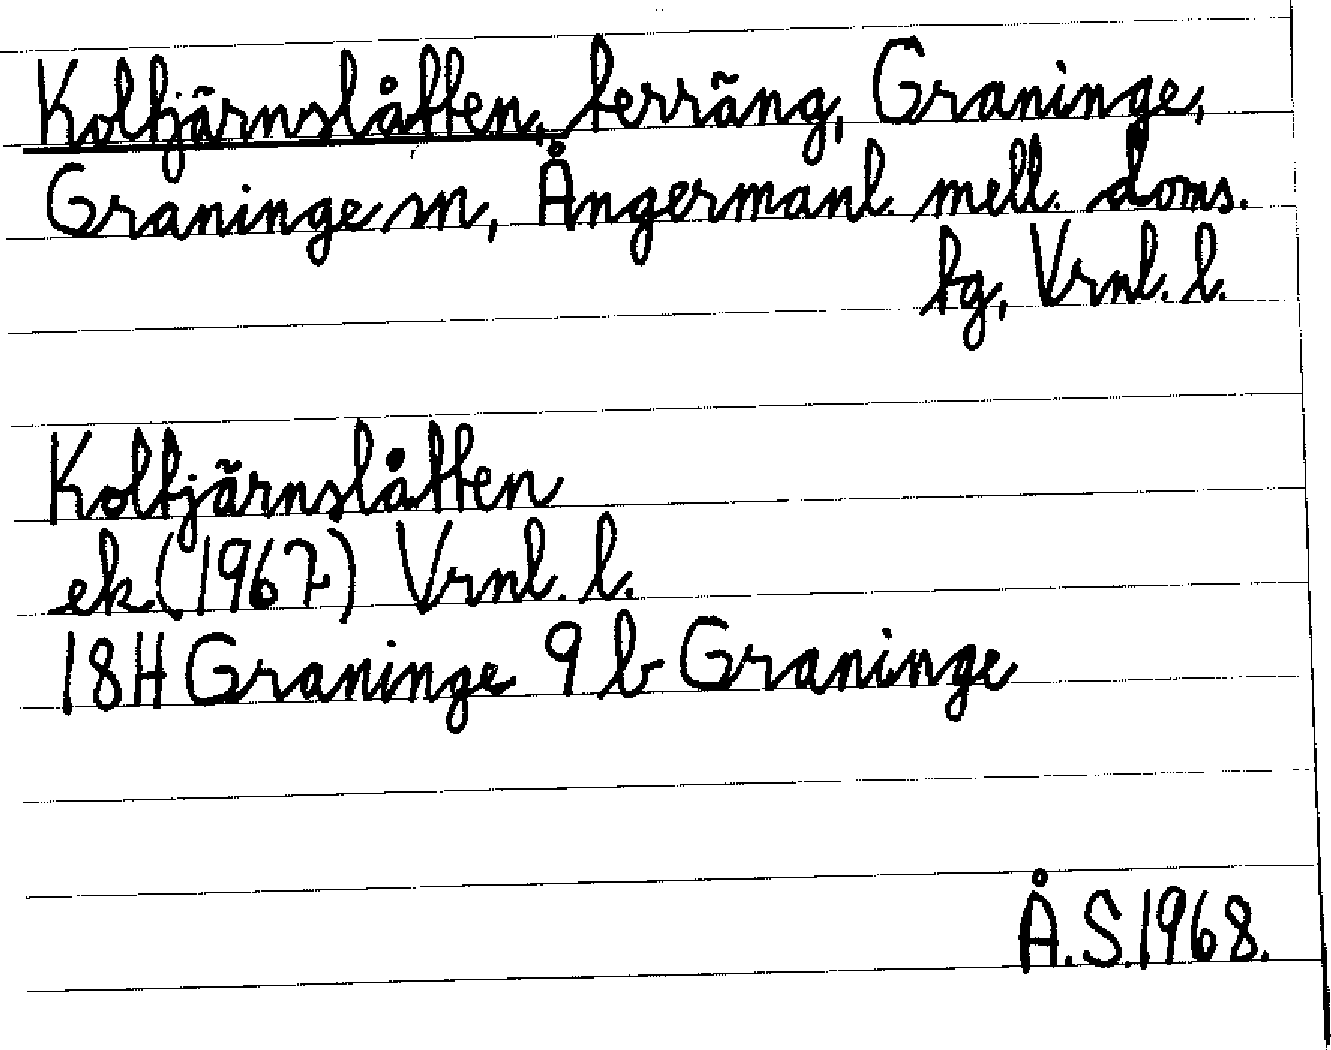 Koltjärnslåtten, terräng, Graninge,
Graninge sn, Ångermanl. mell. doms.
tg, Vrnl. l.
Koltjärnslåtten
ek (1967) Vrnl. l.
18H Graninge 9 b Graninge
Å.S. 1968.